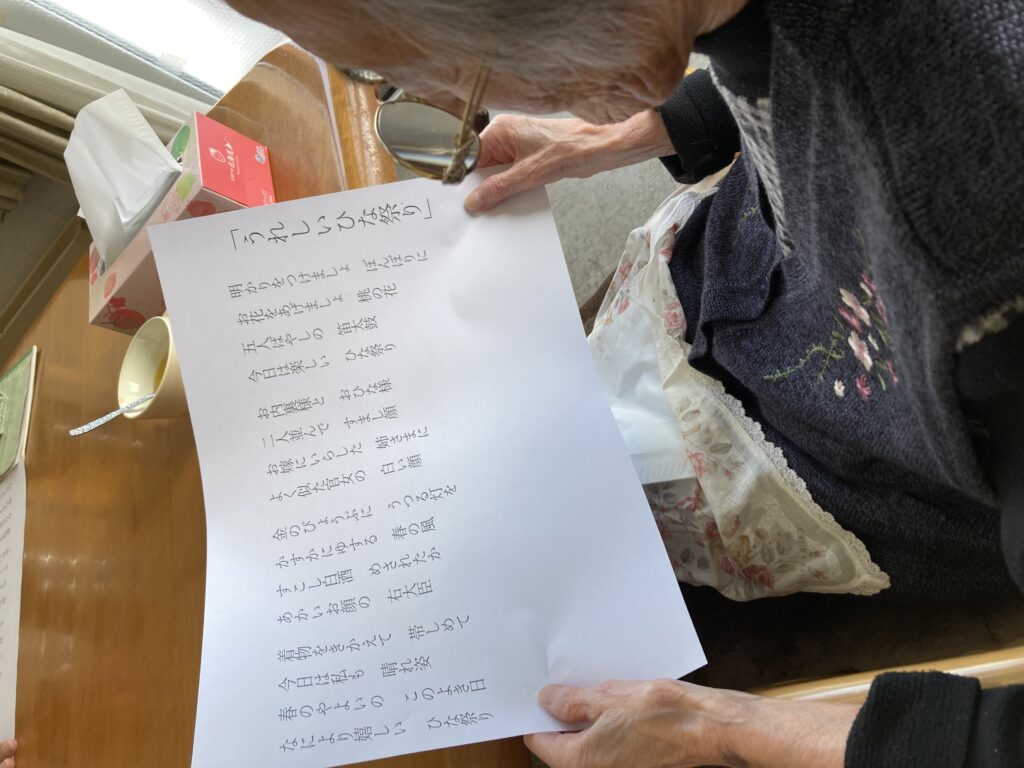 「うれしいひな祭り」
明かりをつけましょ ぼんぼりに
お花をあげましょ 桃の花
五人ばやしの 笛太鼓
今日は楽しい ひな祭り
お内裏様と おひな様
二人並んで すまし顔
お嫁にいらした 姉さまに
よく似た官女の 白い顔
金のびょうぶに うつる灯を
かすかにゆする 春の風
すこし白酒 めされたか
あかいお顔の 右大臣
着物をきかえて 帯しめて
今日は私も 晴れ姿
春のやよいの このよき日
なにより嬉しい ひな祭り